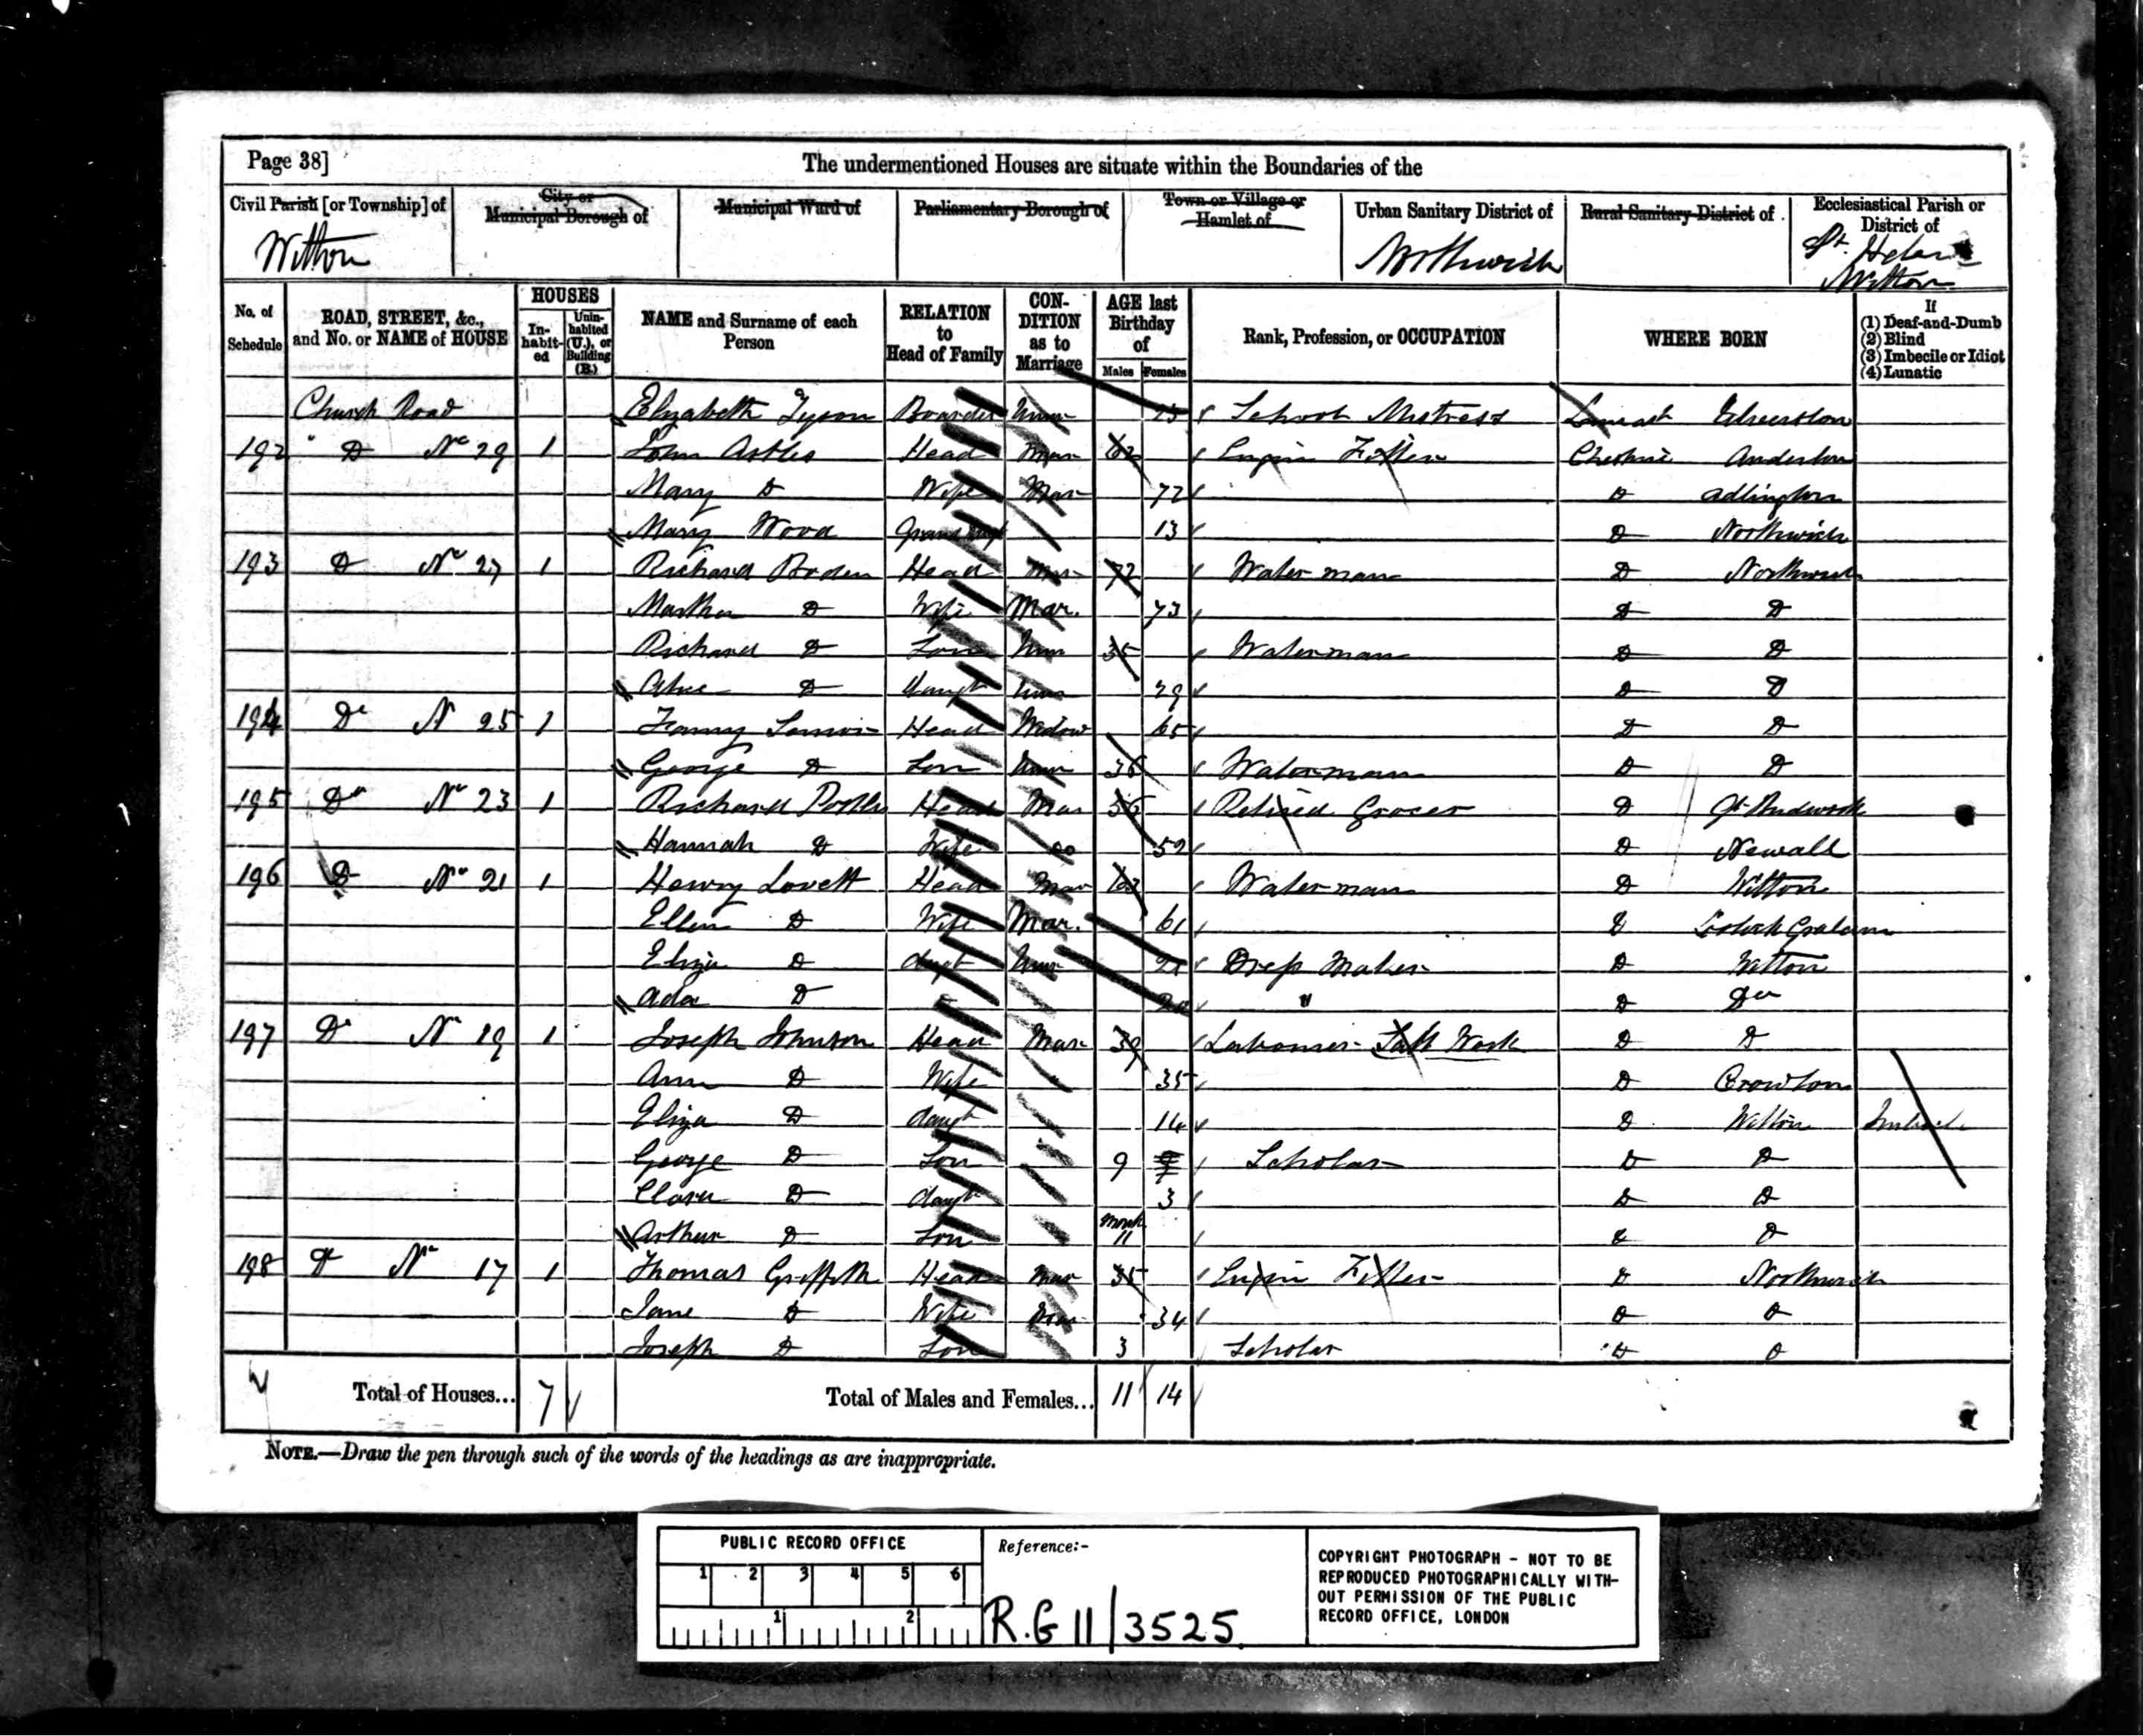 Page 38]
The undermentioned Houses are situate within the Boundaries of the
Civil Parish [or Township] of
City or Municipal Borough of
Municipal Ward of
Parliamentary Borough of
Town or Village or Hamlet of
Urban Sanitary District of
Rural Sanitary District of
Ecclesiastical Parish or District of
Witton
Northwich
St. Helens Witton
No. of Schedule
ROAD, STREET, &c., and No. or NAME of HOUSE
HOUSES
In-habit-ed
Unin-habited (U.), or Building (B.)
NAME and Surname of each Person
RELATION to Head of Family
CON-DITION as to Marriage
AGE last Birthday of
Males
Females
Rank, Profession, or OCCUPATION
WHERE BORN
If
(1) Deaf-and-Dumb
(2) Blind
(3) Imbecile or Idiot
(4) Lunatic
Church Road Elizabeth Tyson Boarder Unm School Mistress Lancash
192 Do No 29 1 John Astles Head Mar Engin Fitter Cheshire Anderton
Mary Do Wife Mar 72 Do Adlington
Mary Wood 13 Do Northwich
193 Do No 27 1 Richard Boden Head Mar 72 Waterman Do Northwich
Martha Do Wife Mar. 73 Do Do
Richard Do Son Unm 35 Waterman Do Do
Alice Do Daught Unm 29 Do Do
194 Do N 25 1 Fanny Head Widow 65 Do Do
George Do Son Unm 36 Waterman Do Do
195 Do No 23 1 Richard Head Mar 56 Retired Grocer Do Gt Budworth
Hannah Do Wife Do 52 Do Newall
196 Do No 21 1 Henry Lovett Head Mar 63 Waterman Do Witton
Ellen Do Wife Mar. 61 Do Lostock Gralam
Eliza Do daught Unm Dress Maker Do Witton
Ada Do " Do Do
197 Do No 19 1 Joseph Johnson Head Mar 39 Labourer Salt Work Do Do
Ann Do Wife 35 Do Crowton
Eliza Do daugt 14 Do Witton Imbecile
George Do Son 9 Scholar Do Do
Clara Do daugt 3 Do Do
Arthur Do Son Month 11 Do Do
198 Do No 17 1 Thomas Griffith Head Mar 35 Engin Fitter Do Northwich
Jane Do Wife Mar 34 Do Do
Joseph Do Son 3 Scholar Do Do
Total of Houses... 7
Total of Males and Females... 11 14
NOTE.—Draw the pen through such of the words of the headings as are inappropriate.
PUBLIC RECORD OFFICE
1 2 3 4 5 6
1 2
Reference:-
R.G 11/3525
COPYRIGHT PHOTOGRAPH - NOT TO BE
REPRODUCED PHOTOGRAPHICALLY WITH-
OUT PERMISSION OF THE PUBLIC
RECORD OFFICE, LONDON